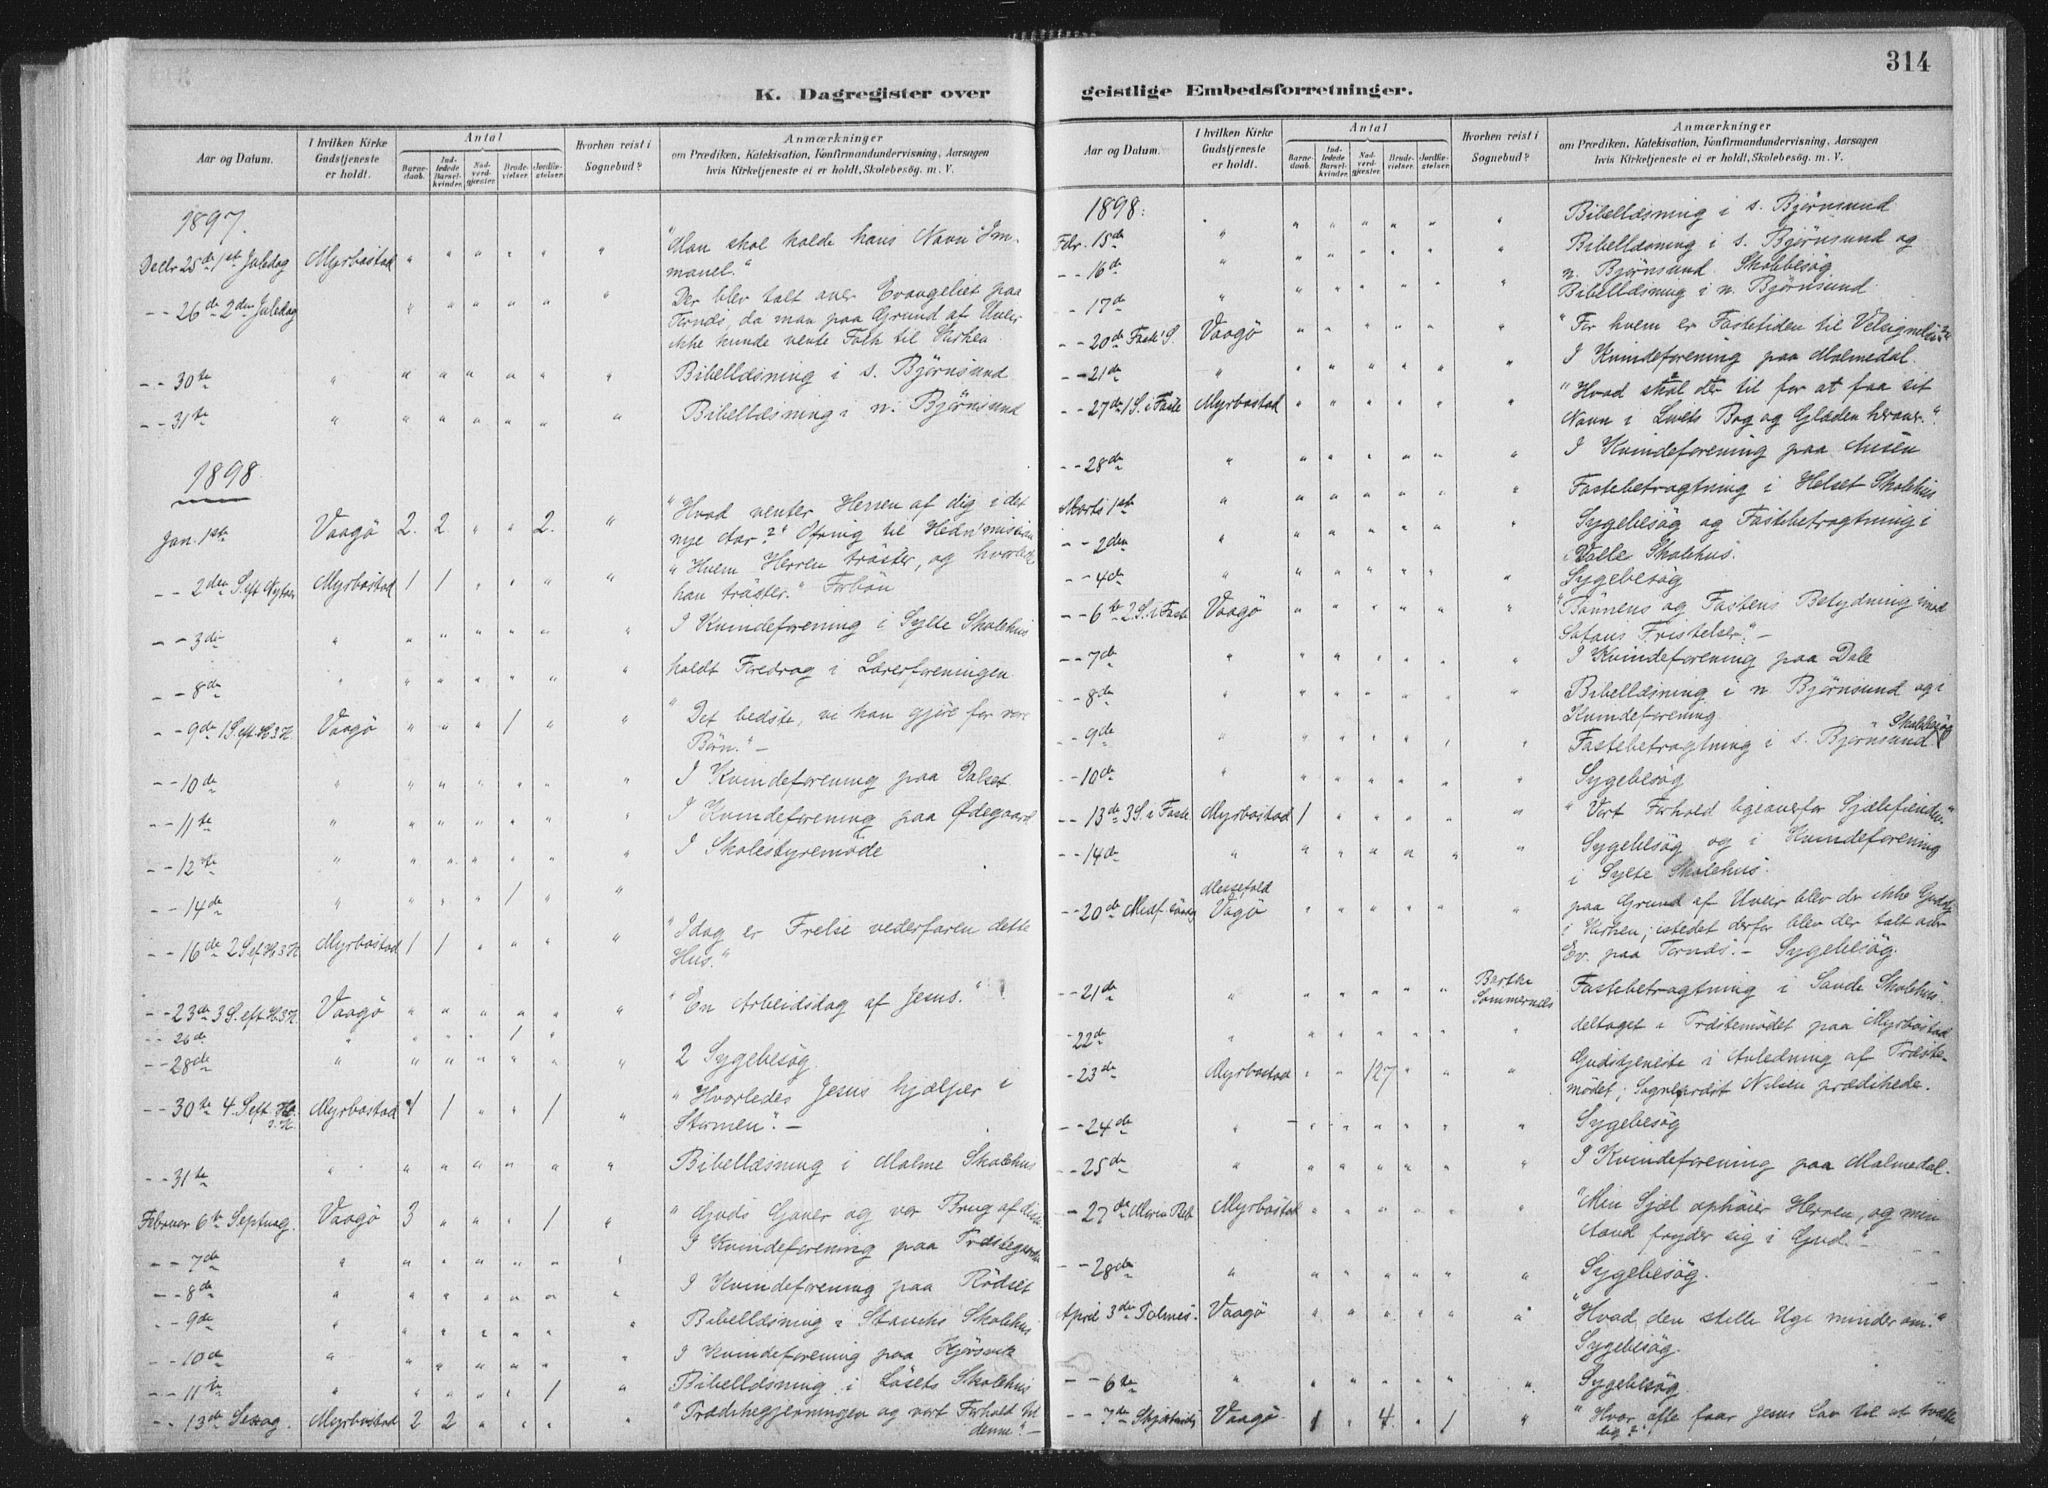 314
K. Dagregister over geistlige Embedsforretninger.
Aar og Datum.
I hvilken Kirke Gudstjeneste er holdt.
Antal
Barnedaab.
Indledede Barselkvinder.
Nadverdgjester.
Brudevielser.
Jordfæstelser.
Hvorhen reist i Sognebud?
Anmærkninger
om Prædiken, Katekisation, Konfirmandundervisning, Aarsagen
hvis Kirketjeneste ei er holdt, Skolebesøg. m. V.
1897.
Decbr 25de 1st Juledag Myrbostad " " " " " " "Man skal kalde hans Navn Im-
manuel."
- - 26de 2den Juledag " " " " " " Der blev talt over Evangeliet paa
Tornæs, da man paa Grund af Uveir
ikke kunde vente Folk til Kirken.
- - 30te " " " " " " " Bibellæsning i s. Bjørnsund
- - 31te " " " " " " " Bibellæsning i n. Bjørnsund
1898
Jan. 1ste Vaagö 2. 2 " " 2. " "Hvad venter Herren af dig i det
nye Aar?" Ofring til Hedn'mission
- - 2den S. eft Nytaar Myrbostad 1 1 " " " " "Hvem Herren tröster, og hvorledes
han tröster." Forbön
- - 3die " " " " " " " I Kvindeforening i Sylte Skolehus
- - 8de " " " " " " " holdt Foredrag i Lærerforeningen
- - 9de 1 S. eft. H. 3 K. Vaagö " " " 1 " " "Det bedste, vi kan gjöre for vore
Børn." -
- - 10de " " " " " " " I Kvindeforening paa Dalset
- - 11te " " " " " " " I Kvindeforening paa Ødegaard
- - 12te " " " " " " " I Skolestyremöde
- - 14de " " " " 1 " "
- - 16de 2 S. ef H. 3 K. Myrbostad 1 1 " " " " "Idag er Frelse vederfaren dette
Hus."
- - 23de 3 S. eft. H. 3 K. Vaagö " " " " " " "En Arbeidsdag af Jesus."
- - 26de " " " " 1 "
- - 28de " " " " " " " 2 Sygebesög
- - 30te 4. S eft H. 3. K. Myrbostad 1 1 " " 1 " "Hvorledes Jesus hjælper i
Stormen". -
- - 31te " " " " " " " Bibellæsning i Malme Skolehus
Februar 6te Septuag. Vaagö 3 " " " 1 " "Guds Gaver og vor Brug af disse
- - 7de " " " " " " " I Kvindeforening paa Præstegaarden
- - 8de " " " " " " " I Kvindeforening paa Rödset
- - 9de " " " " " " " Bibellæsning i Skolehus
- - 10de " " " " " " " I Kvindeforening paa Kjörsvik
- - 11te " " " " " 1 " Bibellæsning i Löset Skolehus
- - 13de Sexag. Myrbostad 2 2 " " " " "Prædikegjerningen og vort Forhold til
denne". -
1898:
Febr. 15de " " " " " " " Bibellæsning i s. Bjørnsund
- - 16de " " " " " " " Bibellæsning i s. Bjørnsund og
n. Bjørnsund. Skolebesög
- - 17de " " " " " " " Bibellæsning i n. Bjørnsund
- - 20de Faste S. Vaagö " " " " " " "For hvem er Fastetiden til Velsignelse?"
- - 21de " " " " " " " I Kvindeforening paa Malmedal.
- - 27de 1 S. i Faste Myrbostad " " " " " " "Hvad skal der til for at faa sit
Navn i Livets Bog og Glæden herover."
- - 28de " " " " " " " I Kvindeforening paa
Marts 1ste " " " " " " " Fastebetragtning i Helset Skolehus
- - 2den " " " " " " " Sygebesög og Fastebetragtning i
Valle Skolehus.
- - 4de " " " " " " " Sygebesög
- - 6te 2 S. i Faste Vaagö " " " " " " "Bönnens og Fastens Betydning imod
Satans Fristelser." -
- - 7de " " " " " " " I Kvindeforening paa Dale
- - 8de " " " " " " " Bibellæsning i n Bjørnsund og i
Kvindeforening
- - 9de " " " " " " " Fastebetragtning i s. Bjørnsund. Skolebesög
- - 10de " " " " " " " Sygebesög
- - 13de 3 S. i Faste Myrbostad 1 " " " " " "Vort Forhold ligeoverfor Sjælefienden"
- - 14de " " " " " " " Sygebesög og i Kvindeforening
i Sylte Skolehus.
- - 20de Midf. Söndag Messefald Vaagö " " " " " " paa Grund af Uveir blev der ikke Gudstj
i Kirken; istedet derfor blev der talt over
Ev. paa Tornæs. - Sygebesög.
- - 21de " " " " " " Sommernes Fastebetragtning i Sande Skolehus.
- - 22de " " " " " " " deltaget i Præstemödet paa Myrbostad
- - 23de Myrbostad " " 127 " " " Gudstjeneste i Anledning af Præste-
mödet; Sogneprest Nilsen prædikede.
- - 24de " " " " " " " Sygebesög
- - 25de " " " " " " " I Kvindeforening paa Malmedal.
- 27de Mariæ Beb Myrbostad " " " " " " "Min Sjæl ophöier Herren, og min
Aand fryder sig i Gud."
- - 28de " " " " " " " Sygebesög.
April 3die Palmes. Vaagö " " " " " " "Hvad den stille Uge minder om."
Sygebesög.
- - 6te " " " " " " " Sygebesög.
- - 7de Skjærtorsdg Vaagö 1 " 4. " 1 " "Hvor ofte faar Jesus Lov til at tvætte
dig?"